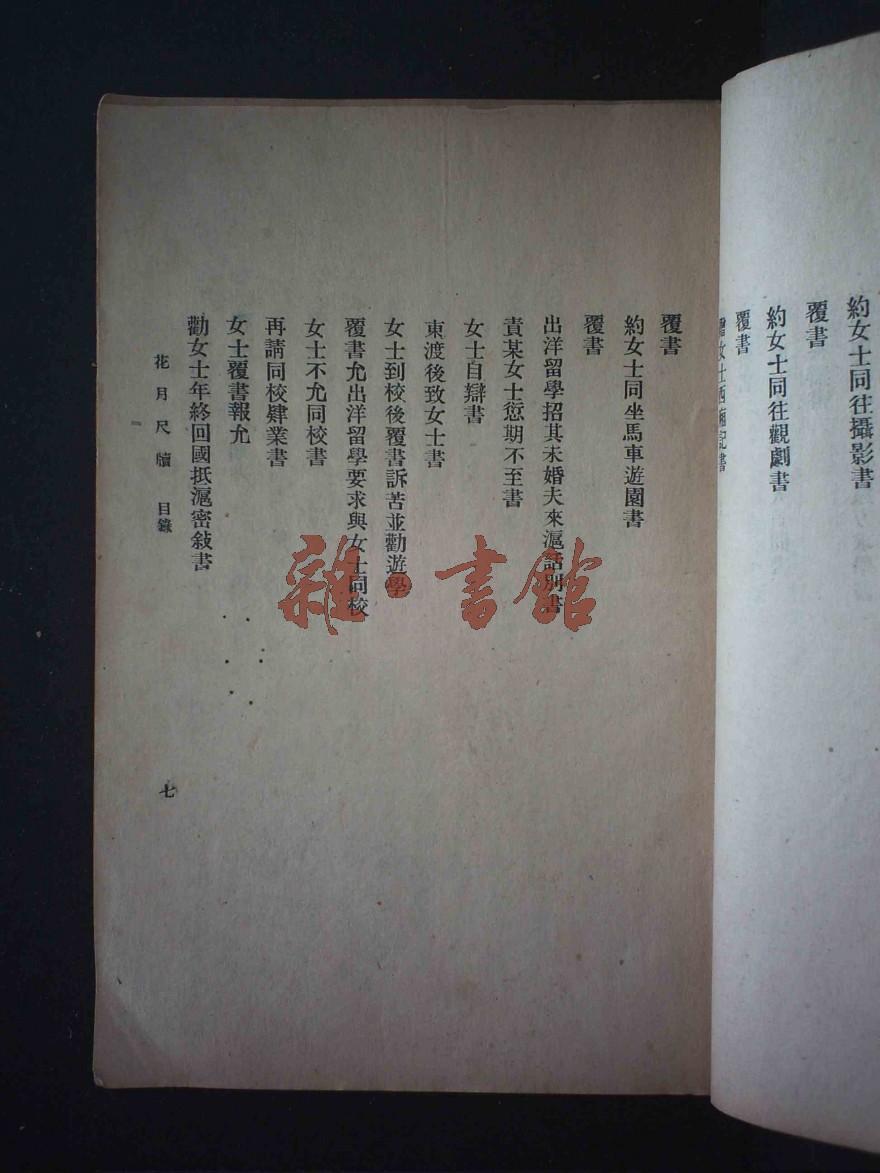 約女士同往攝影書
覆書
約女士同往觀劇書
覆書
女士西廂記書
覆書
約女士同坐馬車遊園書
覆書
出洋留學招其未婚夫來滬話別書
責某女士愆期不至書
女士自辯書
東渡後致女士書
女士到校後覆書訴苦並勸遊學
覆書允出洋留學要求與女士同校
女士不允同校書
再請同校肄業書
女士覆書報允
勸女士年終回國抵滬密敍書
花月尺牘 目錄
七
雜·書館